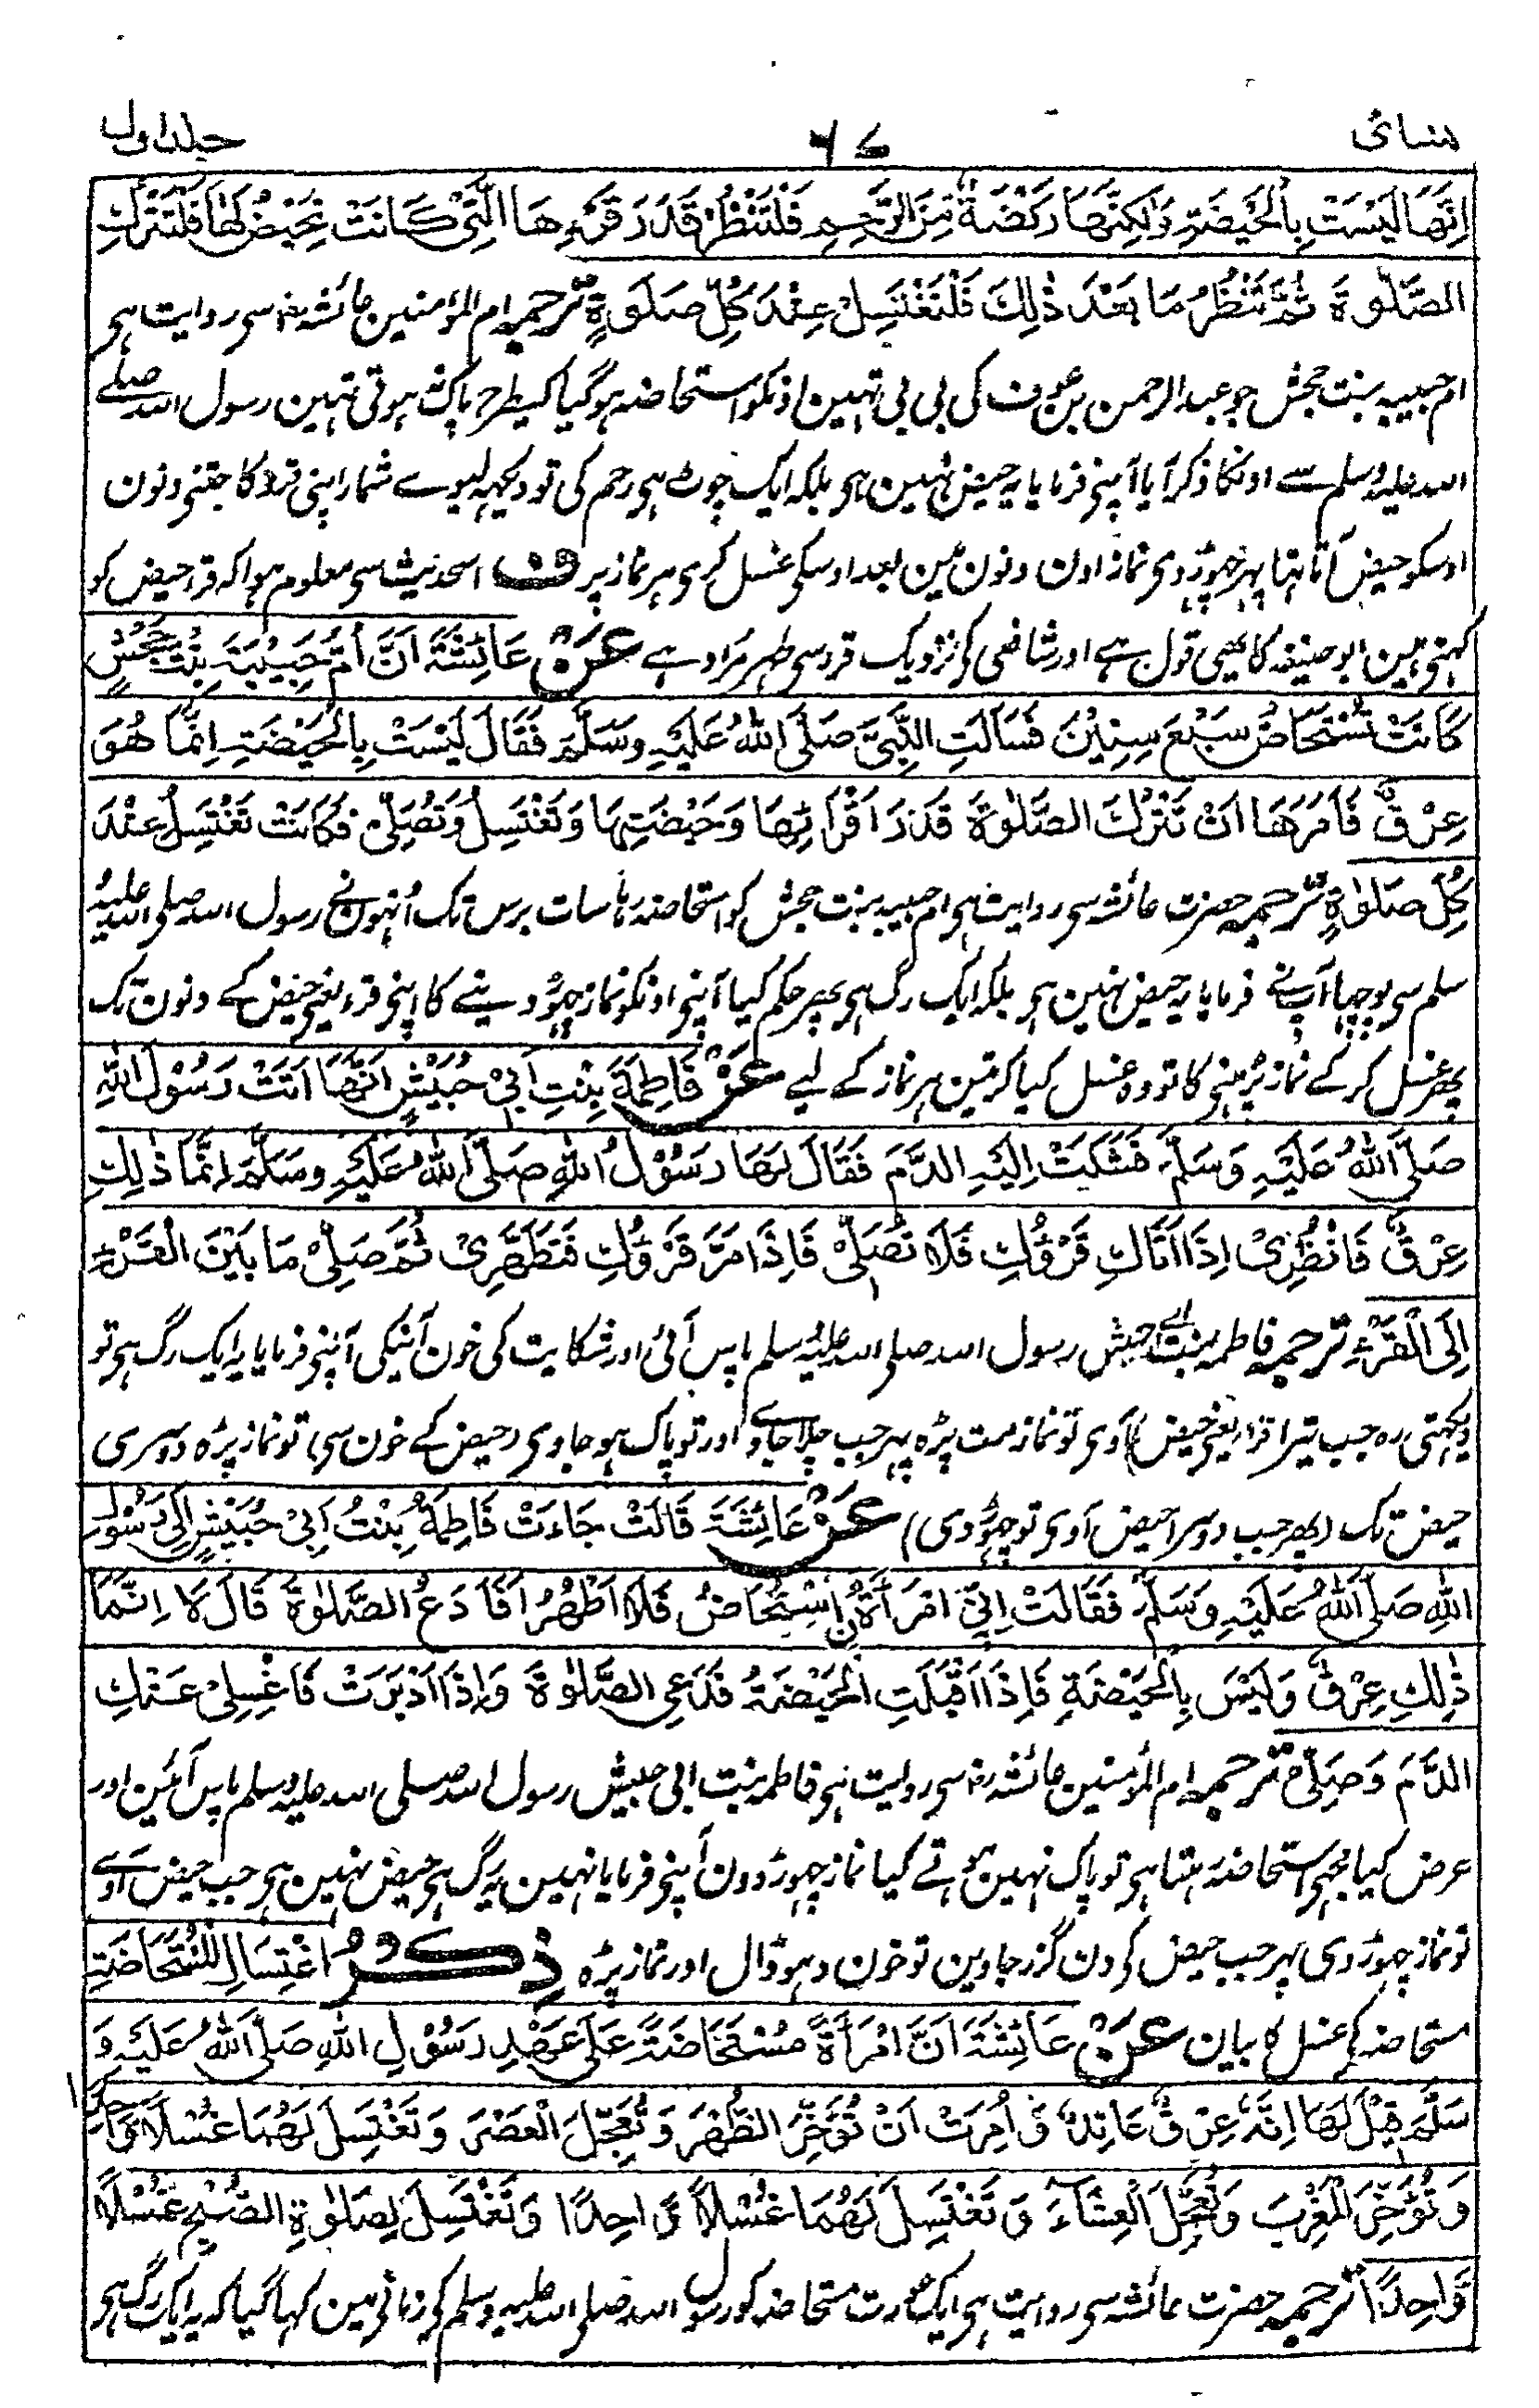 نسائی ۶۷ جلد اول
اِنَّهَا لَيْسَتْ بِالْحَيْضَةِ وَلٰكِنَّهَا رَكْضَةٌ مِّنَ الرَّحِمِ فَلْتَنْظُرْ قَدَرَ قَرْءِهَا الَّتِیْ كَانَتْ تَحِيْضُ لَهَا فَلْتَتْرُكِ
الصَّلٰوةَ ثُمَّ تَنْظُرُ مَا بَعْدَ ذٰلِكَ فَلْتَغْتَسِلْ عِنْدَ كُلِّ صَلٰوةٍ ترجمہ ام المؤمنین عائشہ رضہ سی روایت ہی
ام حبیبہ بنت جحش جو عبدالرحمن بن عوف کی بی بی تہین اونکو استحاضہ ہوگیا کسیطرح پاک نہوتی تہین رسول اللہ صلے
اللہ علیہ وسلم سے اونکا ذکر آیا آپنی فرمایا یہ حیض نہین ہی بلکہ ایک چوٹ ہی رحم کی تو دیکہہ لیوے شمار اپنی قرء کا جتنی دنون
اوسکو حیض آتا تہا پہر چہوڑ دی نماز اون دنون مین بعد اوسکی غسل کری ہر نماز پر ف اسحدیث سی معلوم ہوا کہ قرء حیض کو
کہتی ہین ابو حنیفہ کا یہی قول ہے اور شافعی کی نزدیک قرء سی طہر مراد ہے عَنْ عَائِشَةَ اَنَّ اُمَّ حَبِيْبَةَ بِنْتَ جَحْشٍ
كَانَتْ تُسْتَحَاضُ سَبْعَ سِنِيْنَ فَسَاَلَتِ النَّبِیَّ صَلَّى اللهُ عَلَيْهِ وَسَلَّمَ فَقَالَ لَيْسَتْ بِالْحَيْضَةِ اِنَّمَا هُوَ
عِرْقٌ فَاَمَرَهَا اَنْ تَتْرُكَ الصَّلٰوةَ قَدَرَ اَقْرَاۤئِهَا وَحَيْضَتِهَا وَتَغْتَسِلُ وَتُصَلِّیْ فَكَانَتْ تَغْتَسِلُ عِنْدَ
كُلِّ صَلٰوةٍ ترجمہ حضرت عائشہ سی روایت ہی ام حبیبہ بنت جحش کو استحاضہ رہا سات برس تک اُنہون نی رسول اللہ صلی اللہ علیہ و
سلم سی پوچہا آپ نے فرمایا یہ حیض نہین ہی بلکہ ایک رگ ہی پھر حکم کیا آپنی اونکو نماز چہوڑ دینے کا اپنی قرء یعنی حیض کے دنون تک
پھر غسل کر کے نماز پڑہنی کا تو وہ غسل کیا کرتین ہر نماز کے لیے عَنْ فَاطِمَةَ بِنْتِ اَبِیْ حُبَيْشٍ اَنَّهَا اَتَتْ رَسُوْلَ اللهِ
صَلَّى اللهُ عَلَيْهِ وَسَلَّمَ فَشَكَتْ اِلَيْهِ الدَّمَ فَقَالَ لَهَا رَسُوْلُ اللهِ صَلَّى اللهُ عَلَيْهِ وَسَلَّمَ اِنَّمَا ذٰلِكِ
عِرْقٌ فَانْظُرِیْ اِذَا اَتَاكِ قَرْؤُكِ فَلَا تُصَلِّیْ فَاِذَا مَرَّ قَرْؤُكِ فَتَطَهَّرِیْ ثُمَّ صَلِّیْ مَا بَيْنَ الْقَرْءِ
اِلَى الْقَرْءِ ترجمہ فاطمہ بنت ابی حبیش رسول اللہ صلی اللہ علیہ وسلم پاس آئی اور شکایت کی خون آنیکی آپنی فرمایا یہ ایک رگ ہی تو
دیکہتی رہ جب تیرا قرء (یعنی حیض) آوی تو نماز مت پڑہ پہر جب چلا جاوے اور تو پاک ہو جاوی (حیض کے خون سی) تو نماز پڑہ دوسری
حیض تک (پھر جب دوسرا حیض آوی تو چہوڑ دی) عَنْ عَائِشَةَ قَالَتْ جَاءَتْ فَاطِمَةُ بِنْتُ اَبِیْ حُبَيْشٍ اِلٰى رَسُوْلِ
اللهِ صَلَّى اللهُ عَلَيْهِ وَسَلَّمَ فَقَالَتْ اِنِّیْ امْرَاَةٌ اُسْتَحَاضُ فَلَا اَطْهُرُ اَفَاَدَعُ الصَّلٰوةَ قَالَ لَا اِنَّمَا
ذٰلِكِ عِرْقٌ وَلَيْسَ بِالْحَيْضَةِ فَاِذَا اَقْبَلَتِ الْحَيْضَةُ فَدَعِی الصَّلٰوةَ وَاِذَا اَدْبَرَتْ فَاغْسِلِیْ عَنْكِ
الدَّمَ وَصَلِّیْ ترجمہ ام المؤمنین عائشہ رضہ سی روایت ہی فاطمہ بنت ابی حبیش رسول اللہ صلی اللہ علیہ وسلم پاس آئین اور
عرض کیا مجہی استحاضہ رہتا ہی تو پاک نہین ہوتے کیا نماز چہوڑ دون آپنی فرمایا نہین یہ رگ ہی حیض نہین ہی جب حیض آوے
تو نماز چہوڑ دی پہر جب حیض کی دن گزر جاوین تو خون دہو ڈال اور نماز پڑہ ذِكْرُ اغْتِسَالِ الْمُسْتَحَاضَةِ
مستحاضہ کی غسل کا بیان عَنْ عَائِشَةَ اَنَّ امْرَاَةً مُسْتَحَاضَةً عَلٰى عَهْدِ رَسُوْلِ اللهِ صَلَّى اللهُ عَلَيْهِ وَ
سَلَّمَ قِيْلَ لَهَا اِنَّهٗ عِرْقٌ عَانِدٌ وَّ اُمِرَتْ اَنْ تُؤَخِّرَ الظُّهْرَ وَتُعَجِّلَ الْعَصْرَ وَتَغْتَسِلَ لَهُمَا غُسْلًا وَّاحِدًا
وَتُؤَخِّرَ الْمَغْرِبَ وَتُعَجِّلَ الْعِشَاۤءَ وَتَغْتَسِلَ لَهُمَا غُسْلًا وَّاحِدًا وَتَغْتَسِلَ لِصَلٰوةِ الصُّبْحِ غُسْلًا
وَّاحِدًا ترجمہ حضرت عائشہ سی روایت ہی ایک عورت مستحاضہ کو رسول اللہ صلی اللہ علیہ وسلم کی زمانی مین کہا گیا کہ یہ ایک رگ ہی